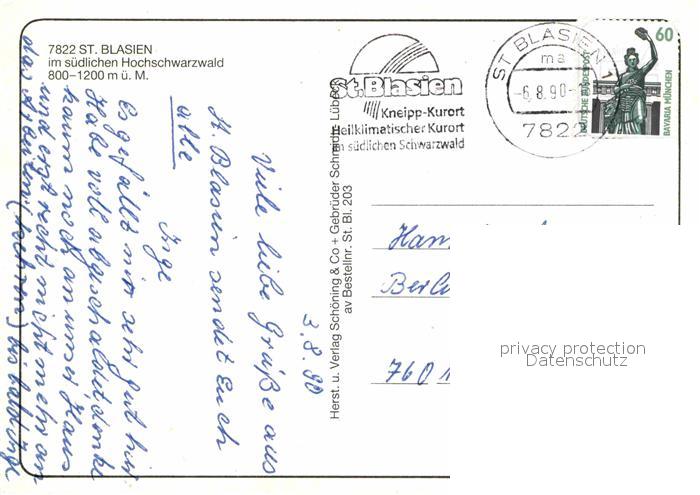 7822 ST. BLASIEN
im südlichen Hochschwarzwald
800–1200 m ü. M.
3.8.90
Viele liebe Grüße aus
St. Blasien sendet Euch
alle
Inge
Es gefällt mir sehr gut hier
Habe voll abgeschaltet denke
kaum noch an unser Haus
und erst recht nicht mehr an
das Arbeiten
Herst. u. Verlag Schöning & Co + Gebrüder Schmidt, Lübeck
av Bestellnr. St. Bl. 203
St. Blasien
Kneipp-Kurort
Heilklimatischer Kurort
im südlichen Schwarzwald
ST BLASIEN 1
ma
-6.8.90-
7822
60
DEUTSCHE BUNDESPOST
BAVARIA MÜNCHEN
Han
Berl
7601
privacy protection
Datenschutz